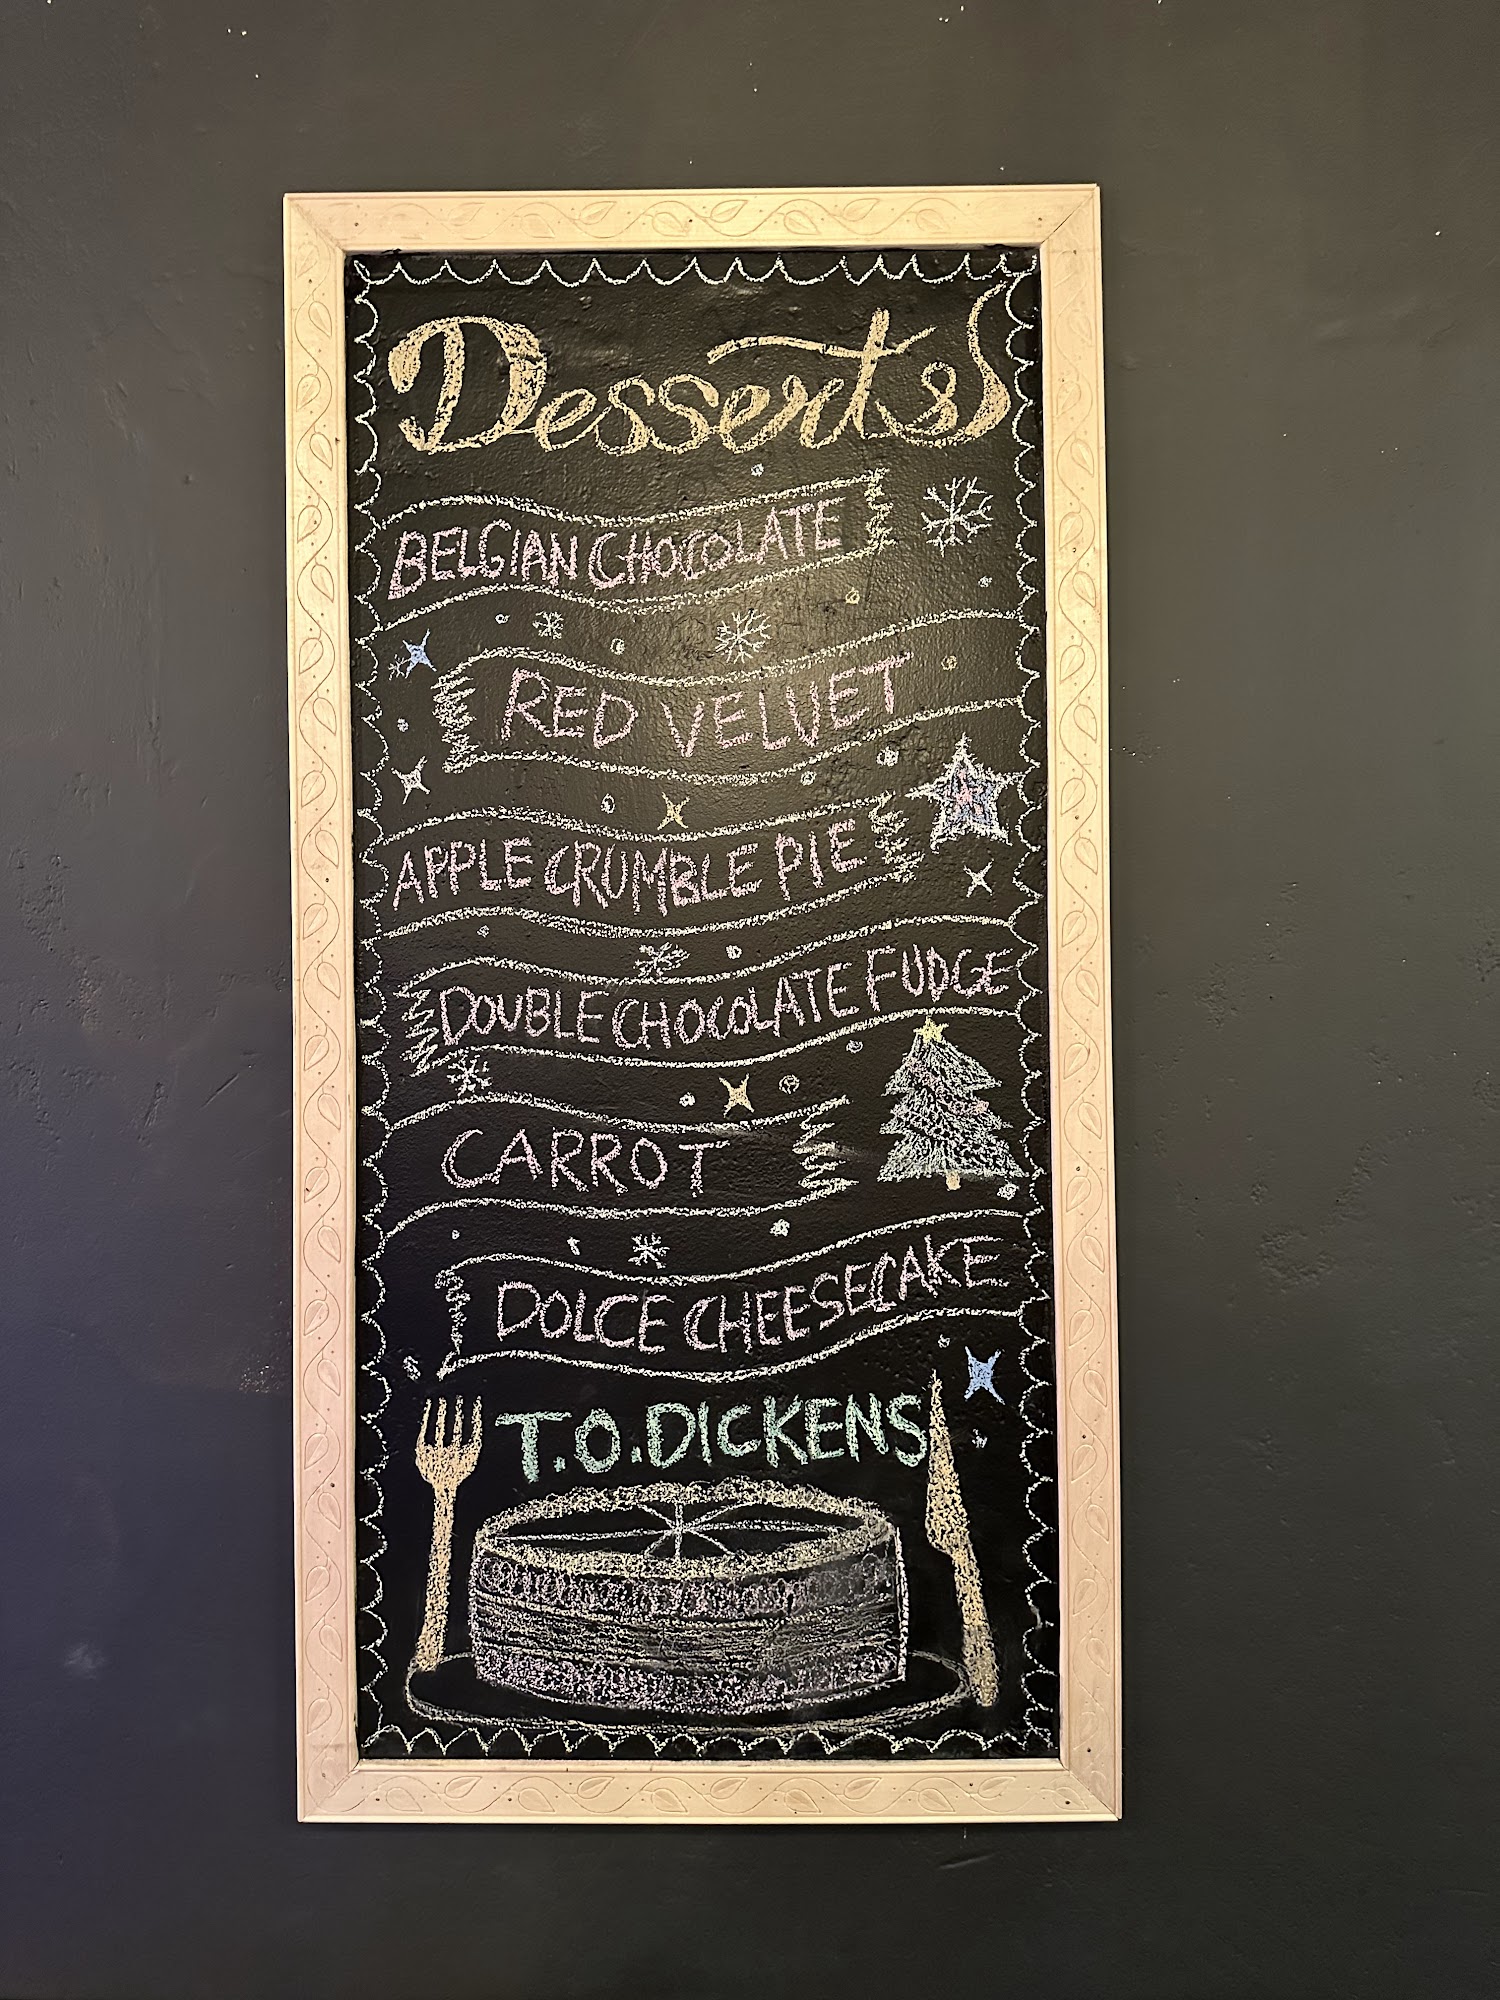 Desserts
BELGIAN CHOCOLATE
RED VELVET
APPLE CRUMBLE PIE
DOUBLE CHOCOLATE FUDGE
CARROT
DOLCE CHEESECAKE
T.O.DICKENS